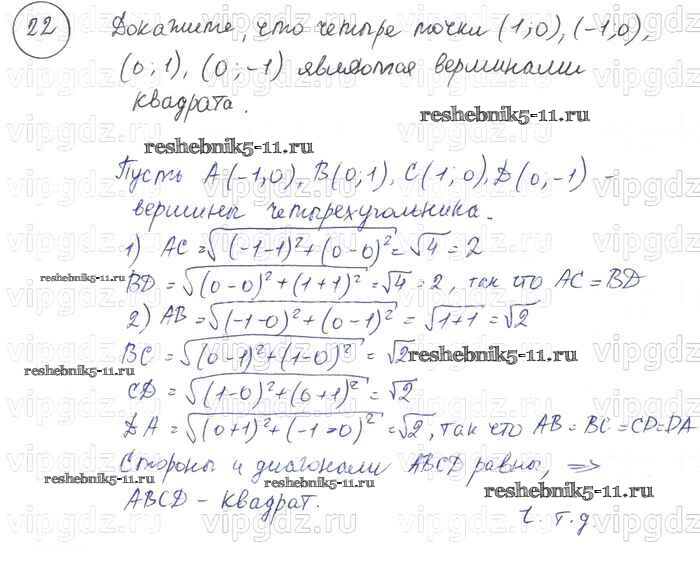 22 Докажите, что четыре точки (1;0), (-1;0),
(0;1), (0;-1) являются вершинами
квадрата.
reshebnik5-11.ru
reshebnik5-11.ru
Пусть A(-1;0), B(0;1), C(1;0), D(0;-1) -
вершины четырехугольника.
1) AC = √(-1-1)²+(0-0)² = √4 = 2
reshebnik5-11.ru
BD = √(0-0)²+(1+1)² = √4 = 2, так что AC = BD
2) AB = √(-1-0)²+(0-1)² = √1+1 = √2
BC = √(0-1)²+(1-0)² = √2
reshebnik5-11.ru
reshebnik5-11.ru
CD = √(1-0)²+(0+1)² = √2
DA = √(0+1)²+(-1-0)² = √2, так что AB = BC = CD = DA
Стороны и диагонали ABCD равны, =>
reshebnik5-11.ru
reshebnik5-11.ru
ABCD - квадрат.
ч.т.д